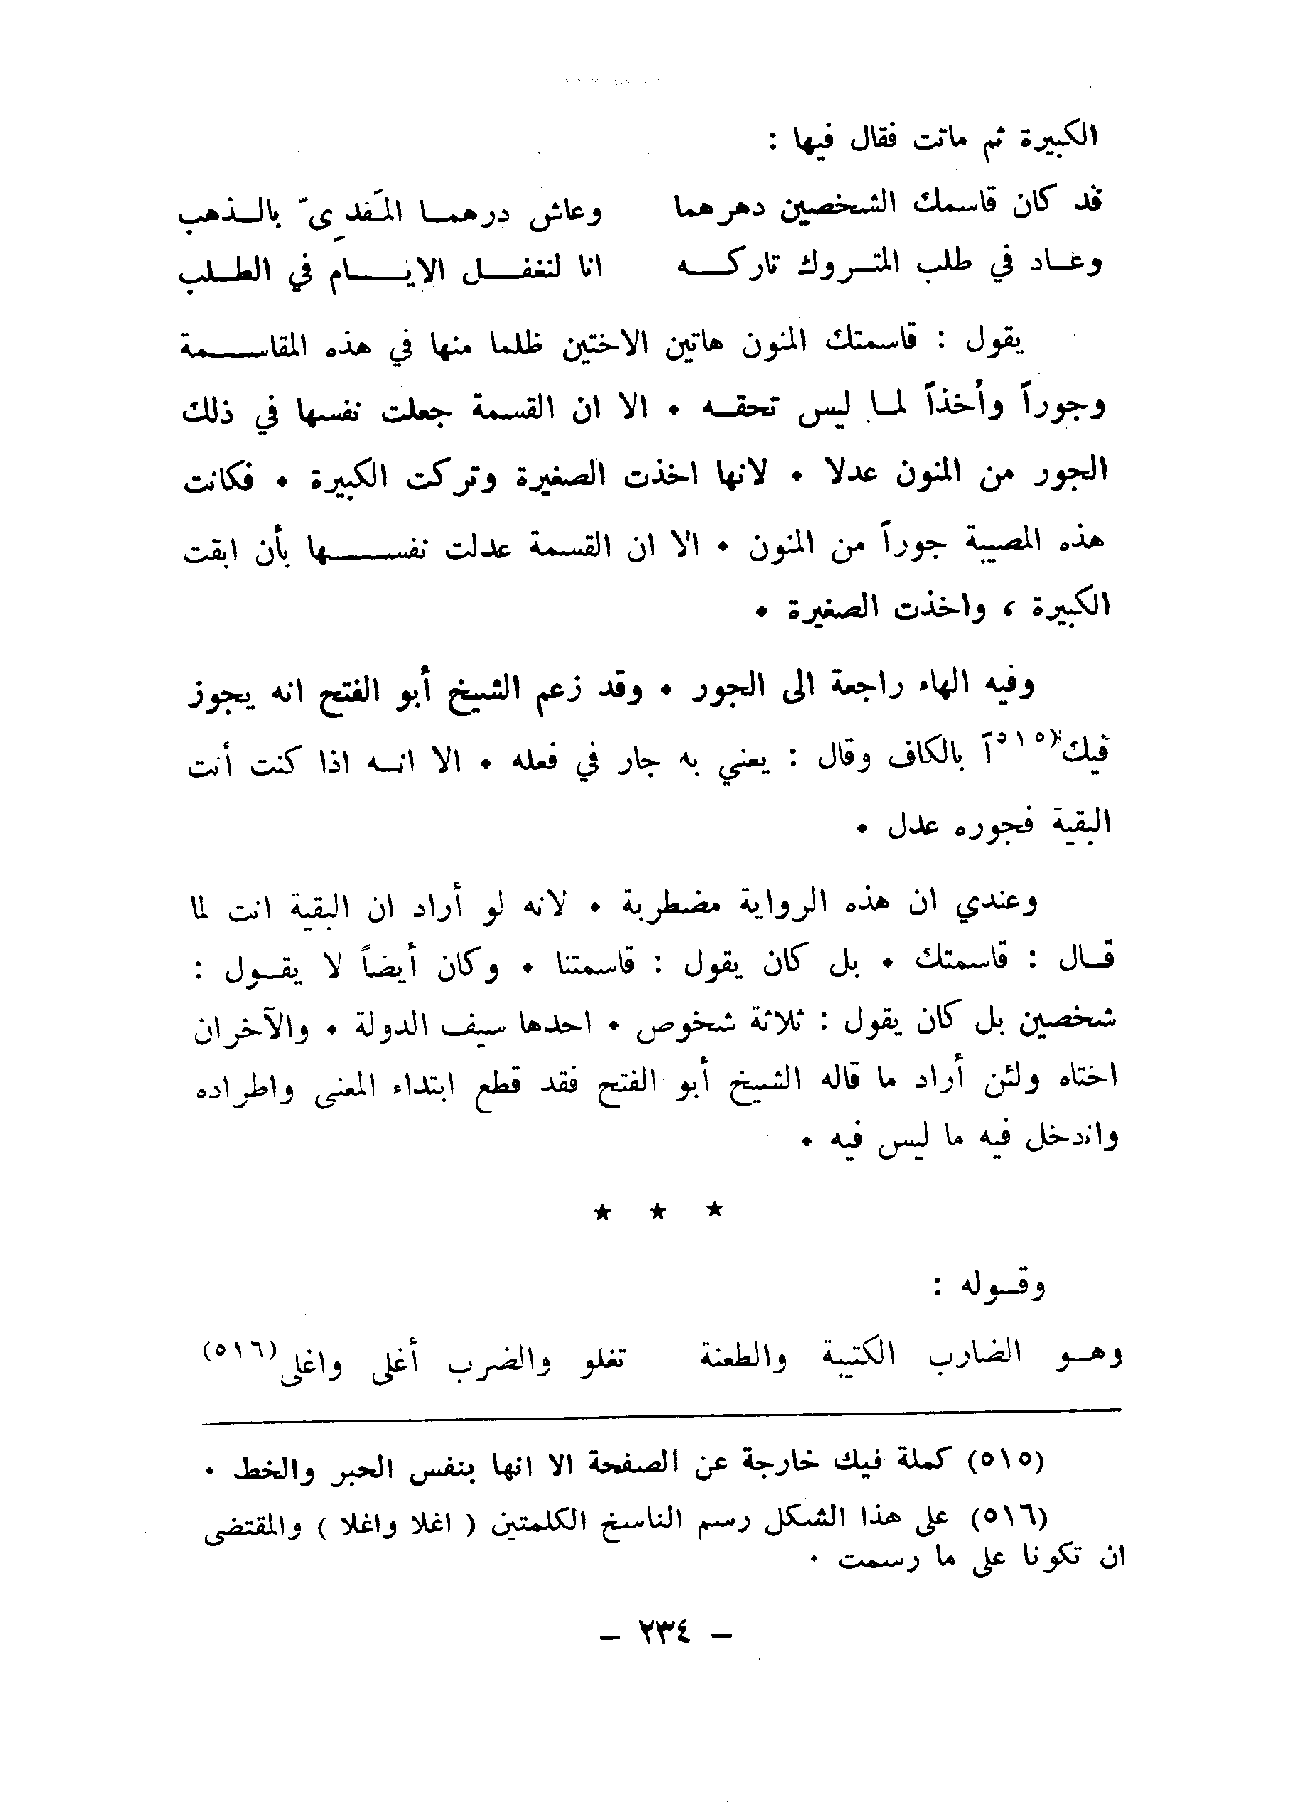 الكبيرة ثم ماتت فقال فيها :
قد كان قاسمك الشخصين دهرهما وعاش درهمـا المَفدِيّ بالـذهب
وعـاد في طلب المتـروك تاركـه انا لنغفـل الايـام في الطـلب
يقول : قاسمتك المنون هاتين الاختين ظلما منها في هذه المقاسـمة
وجوراً وأخذاً لمـا ليس تحقـه • الا ان القسمة جعلت نفسها في ذلك
الجور من المنون عدلا • لانها اخذت الصغيرة وتركت الكبيرة • فكانت
هذه المصيبة جوراً من المنون • الا ان القسمة عدلت نفسـها بأن ابقت
الكبيرة ، واخذت الصغيرة •
وفيه الهاء راجعة الى الجور • وقد زعم الشيخ أبو الفتح انه يجوز
فيك(٥١٥)آ بالكاف وقال : يعني به جار في فعله • الا انـه اذا كنت أنت
البقية فجوره عدل •
وعندي ان هذه الرواية مضطربة • لانه لو أراد ان البقية انت لما
قـال : قاسمتك • بل كان يقول : قاسمتنا • وكان أيضاً لا يقـول :
شخصين بل كان يقول : ثلاثة شخوص • احدها سيف الدولة • والآخران
اختاه ولئن أراد ما قاله الشيخ أبو الفتح فقد قطع ابتداء المعنى واطراده
واندخل فيه ما ليس فيه •
★ ★ ★
وقـوله :
وهـو الضارب الكتيبة والطعنة تغلو والضرب أغلى واغلى(٥١٦)
(٥١٥) كملة فيك خارجة عن الصفحة الا انها بنفس الحبر والخط •
(٥١٦) على هذا الشكل رسم الناسخ الكلمتين ( اغلا واغلا ) والمقتضى
ان تكونا على ما رسمت •
– ٢٣٤ –